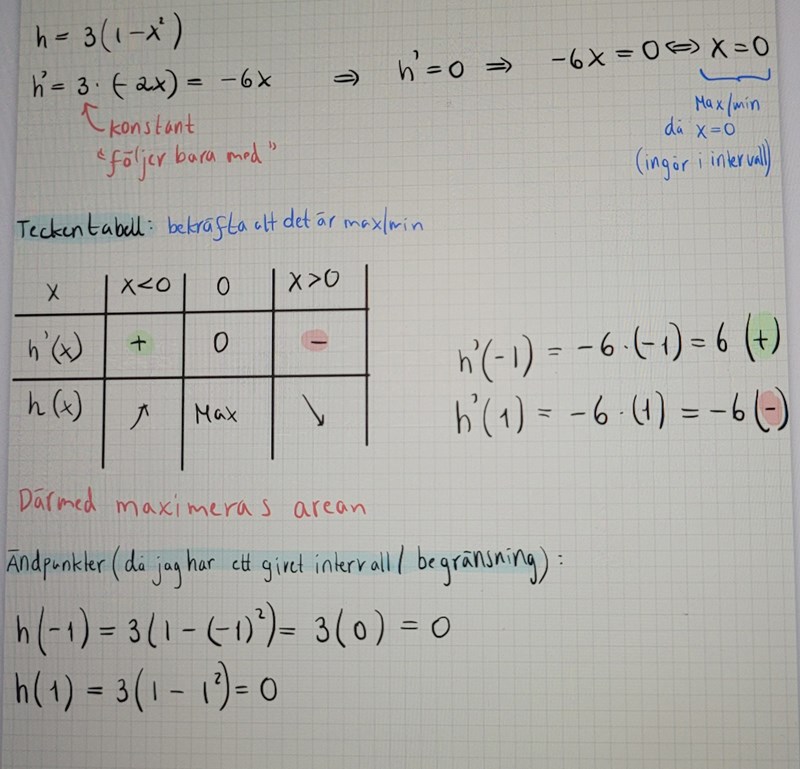 h = 3(1-x²)
h' = 3·(-2x) = -6x ⇒ h'=0 ⇒ -6x=0 ⇔ x=0
konstant
"följer bara med"
Max/min
då x=0
(ingår i intervall)
Teckentabell: bekräfta att det är max/min
x x<0 0 x>0
h'(x) + 0 −
h(x) ↗ Max ↘
h'(-1) = -6·(-1) = 6 (+)
h'(1) = -6·(1) = -6 (-)
Därmed maximeras arean
Ändpunkter (då jag har ett givet intervall/begränsning):
h(-1) = 3(1-(-1)²) = 3(0) = 0
h(1) = 3(1-1²) = 0